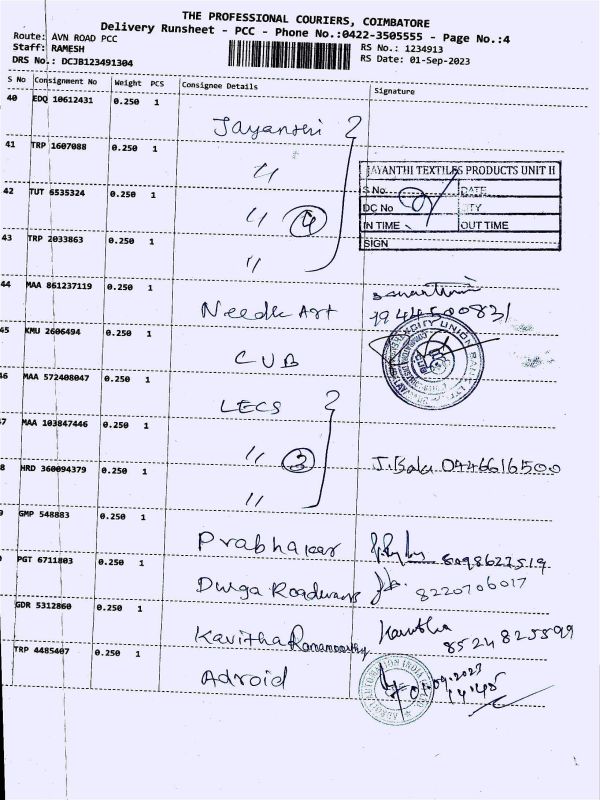 THE PROFESSIONAL COURIERS, COIMBATORE
Delivery Runsheet - PCC - Phone No.:0422-3505555 - Page No.:4
Route: AVN ROAD PCC
RS No.: 1234913
Staff: RAMESH
RS Date: 01-Sep-2023
DRS No.: DCJB123491304
S No Consignment No Weight PCS Consignee Details Signature
40 EDQ 10612431 0.250 1
Jayanthi
41 TRP 1607088 0.250 1
"
JAYANTHI TEXTILES PRODUCTS UNIT II
S No. DATE
42 TUT 6535324 0.250 1
DC No CITY
" 4
IN TIME OUT TIME
43 TRP 2033863 0.250 1
SIGN
"
44 MAA 861237119 0.250 1
Needle Art 9944500831
45 KMU 2606494 0.250 1
CUB
CITY UNION BANK LTD
46 MAA 572408047 0.250 1
LECS
47 MAA 103847446 0.250 1
" 3 J. Balu 0446616500
8 HRD 360094379 0.250 1
"
9 GMP 548883 0.250 1
Prabhakar 8098622519
PGT 6711803 0.250 1
Durga Roadways 8220706017
GDR 5312860 0.250 1
Kavitha Ramamoorthy Kavitha 8524825899
TRP 4485407 0.250 1
Adroid
01.09.2023
14:45